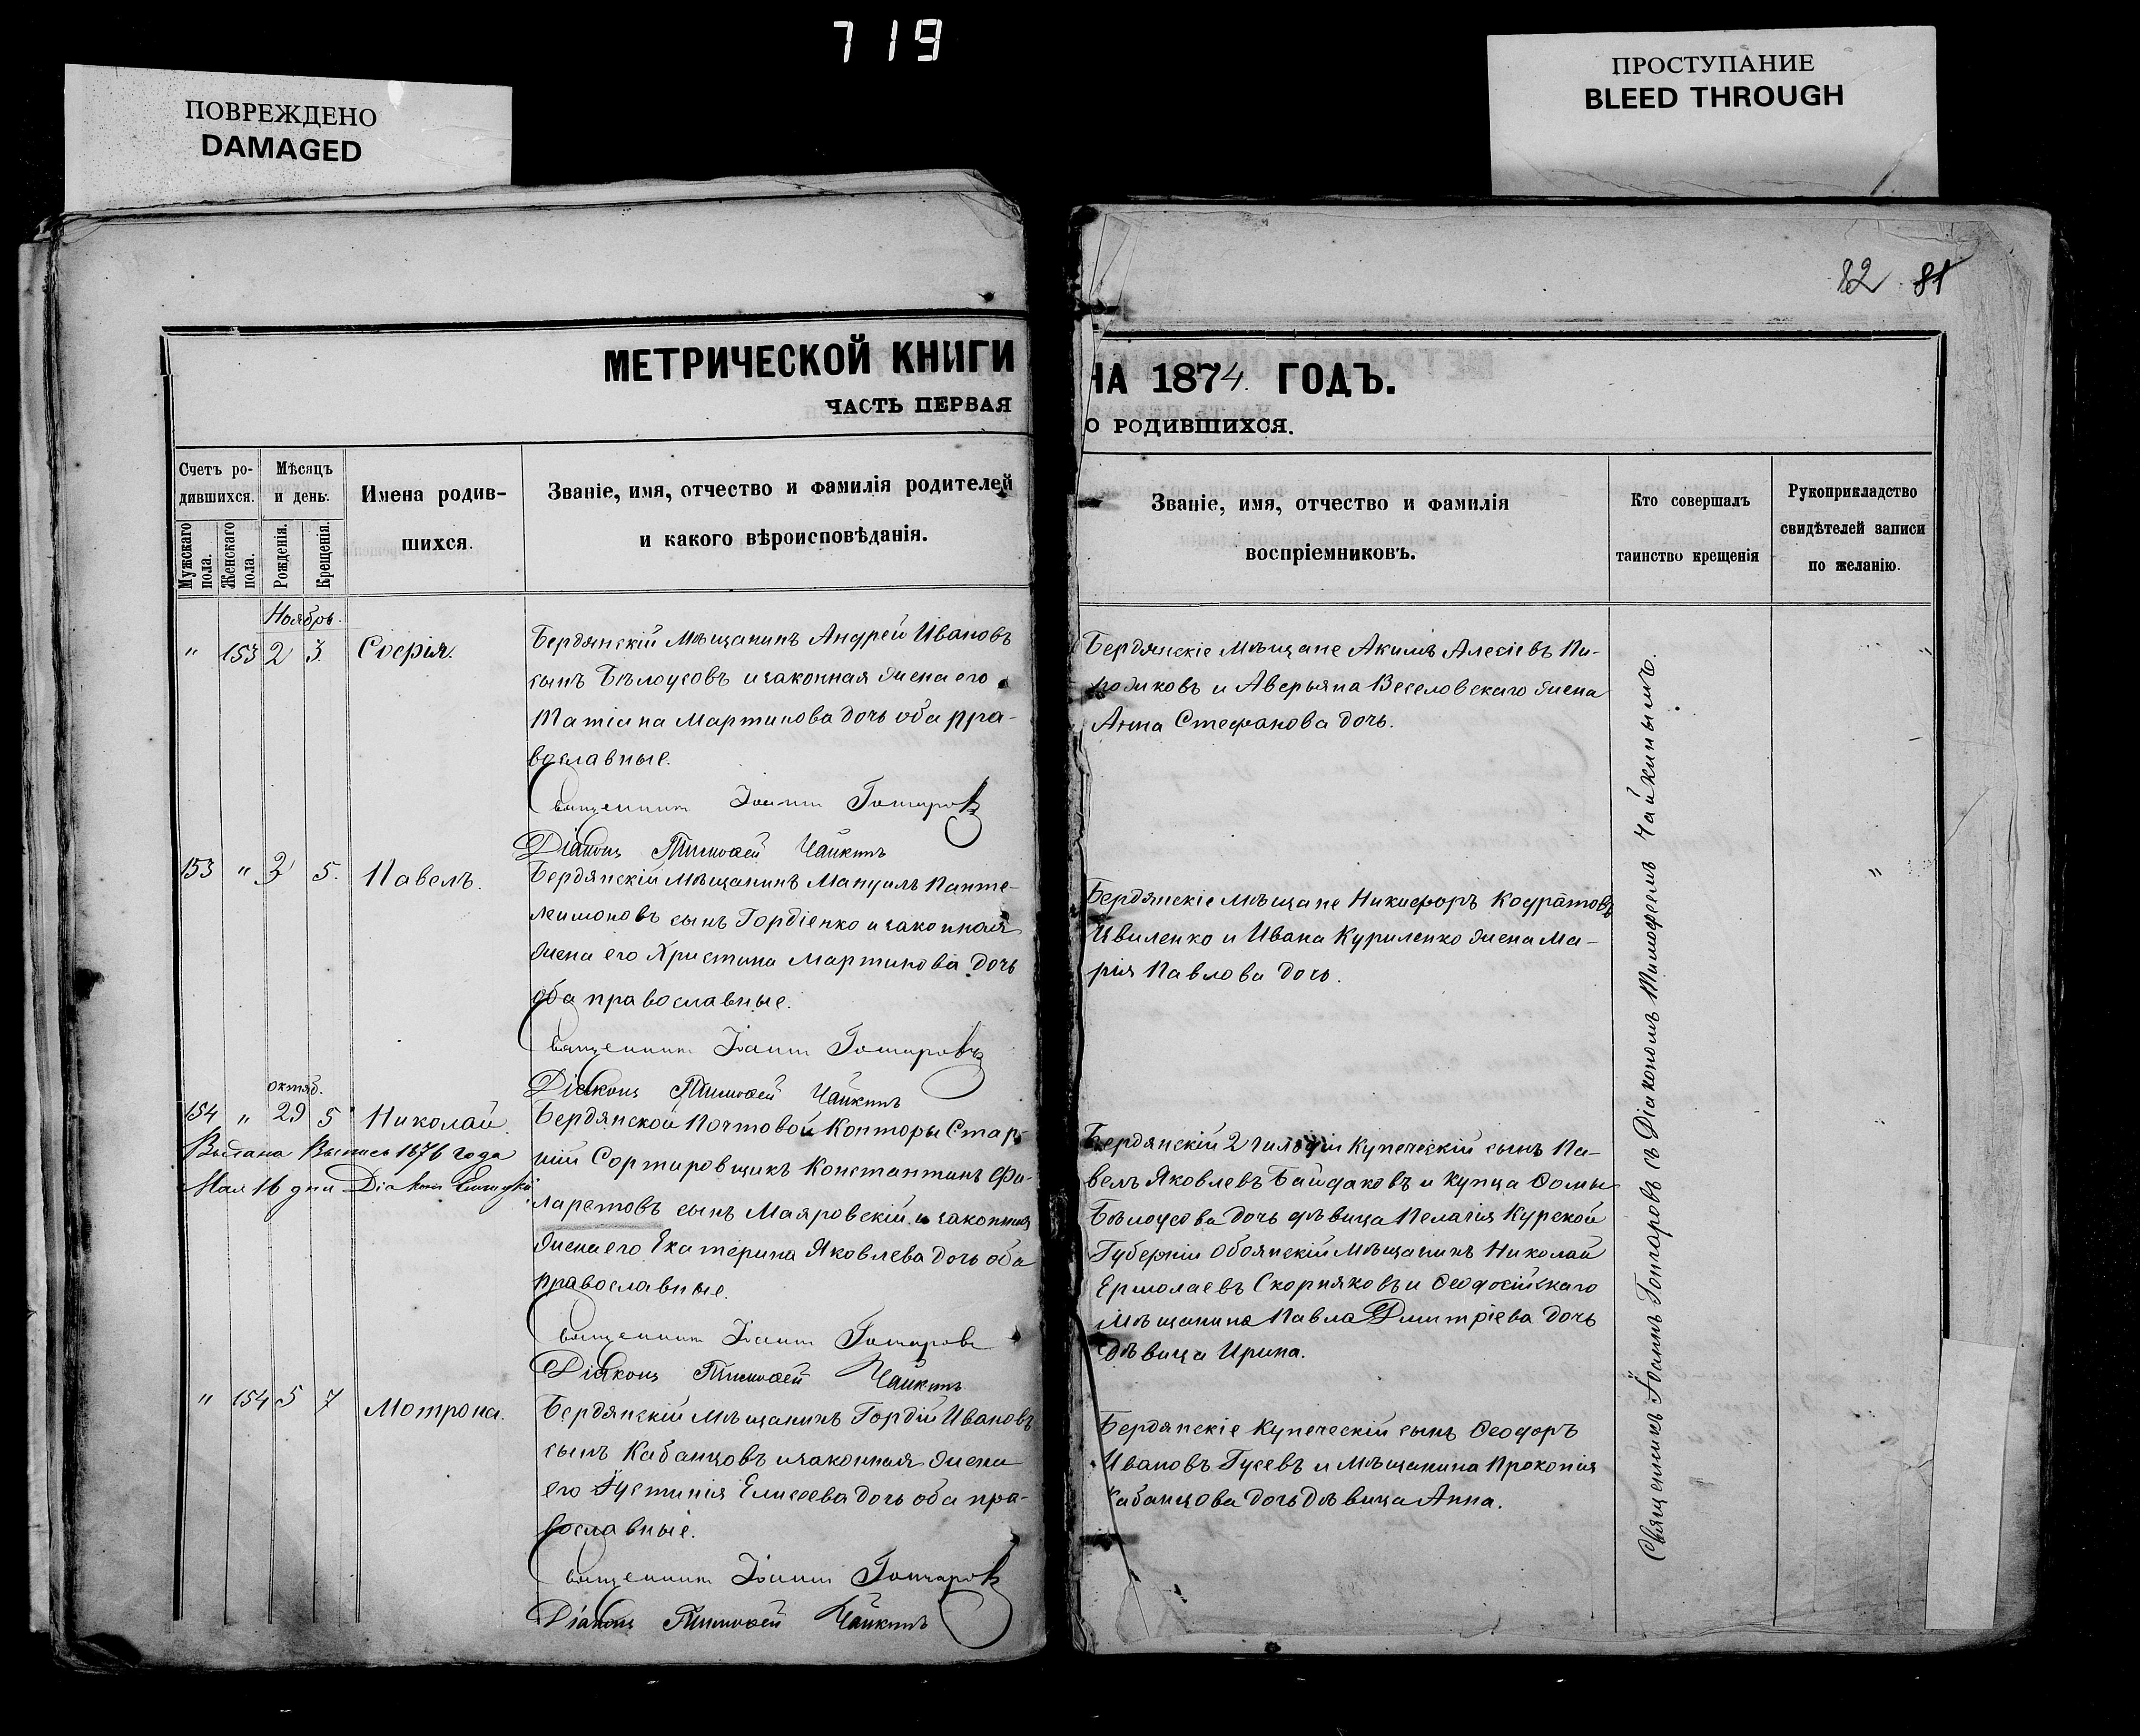 719
ПОВРЕЖДЕНО
DAMAGED
ПРОСТУПАНИЕ
BLEED THROUGH
82 81
МЕТРИЧЕСКОЙ КНИГИ
ЧАСТЬ ПЕРВАЯ
Счетъ ро-
дившихся.
Мужскаго пола.
Женскаго пола.
Мѣсяцъ
и день.
Рожденія.
Крещенія.
Имена родив-
шихся.
Званіе, имя, отчество и фамилія родителей
и какого вѣроисповѣданія.
Ноябрь.
" 153 2 3. Софія.
Бердянскій Мѣщанинъ Андрей Ивановъ
сынъ Бѣлоусовъ и законная жена его
Татіана Мартинова дочь оба пра-
вославные.
Священникъ Іоаннъ Гончаровъ
Діаконъ Тимофей Чайкинъ
153 " 3 5. Павелъ.
Бердянскій Мѣщанинъ Мануилъ Панте-
леимоновъ сынъ Гордіенко и законная
жена его Христина Мартинова дочь
оба православные.
Священникъ Іоаннъ Гончаровъ
Діаконъ Тимофей Чайкинъ
октяб.
154 " 29 5 Николай.
Выдана Выпись 1876 года
Мая 16 дня Діаконъ
Бердянской Почтовой Конторы Стар-
шій Сортировщикъ Константинъ Фи-
ларетовъ сынъ Маяровскій и законная
жена его Екатерина Яковлева дочь оба
православные.
Священникъ Іоаннъ Гончаровъ
Діаконъ Тимофей Чайкинъ
" 154 5 7 Мотрона.
Бердянскій Мѣщанинъ Гордій Ивановъ
сынъ Кабанцовъ и законная жена
его Іустинія Елисеева дочь оба пра-
вославные.
Священникъ Іоаннъ Гончаровъ
Діаконъ Тимофей Чайкинъ
НА 1874 ГОДЪ.
О РОДИВШИХСЯ.
Званіе, имя, отчество и фамилія
воспріемниковъ.
Кто совершалъ
таинство крещенія
Рукоприкладство
свидѣтелей записи
по желанію.
Бердянскіе Мѣщане Акимъ Алексіевъ Пи-
рожковъ и Аверьяна Веселовскаго жена
Анна Стефанова дочь.
Бердянскіе мѣщане Никифоръ Кодратовъ
Ивиленко и Ивана Куриленко жена Ма-
рія Павлова дочь.
"
Бердянскій 2 гильдіи Купеческій сынъ Па-
велъ Яковлевъ Байдаковъ и Купца Ѳомы
Бѣлоусова дочь дѣвица Пелагія Курской
Губерніи Обоянскій Мѣщанинъ Николай
Ермолаевъ Скорняковъ и Ѳеодосійскаго
Мѣщанина Павла Дмитріева дочь
дѣвица Ирина.
Бердянскіе Купеческій сынъ Ѳеодоръ
Ивановъ Гусевъ и Мѣщанина Прокопія
Кабанцова дочь дѣвица Анна.
Священникъ Іоаннъ Гончаровъ съ Діакономъ Тимофеемъ Чайкинымъ.